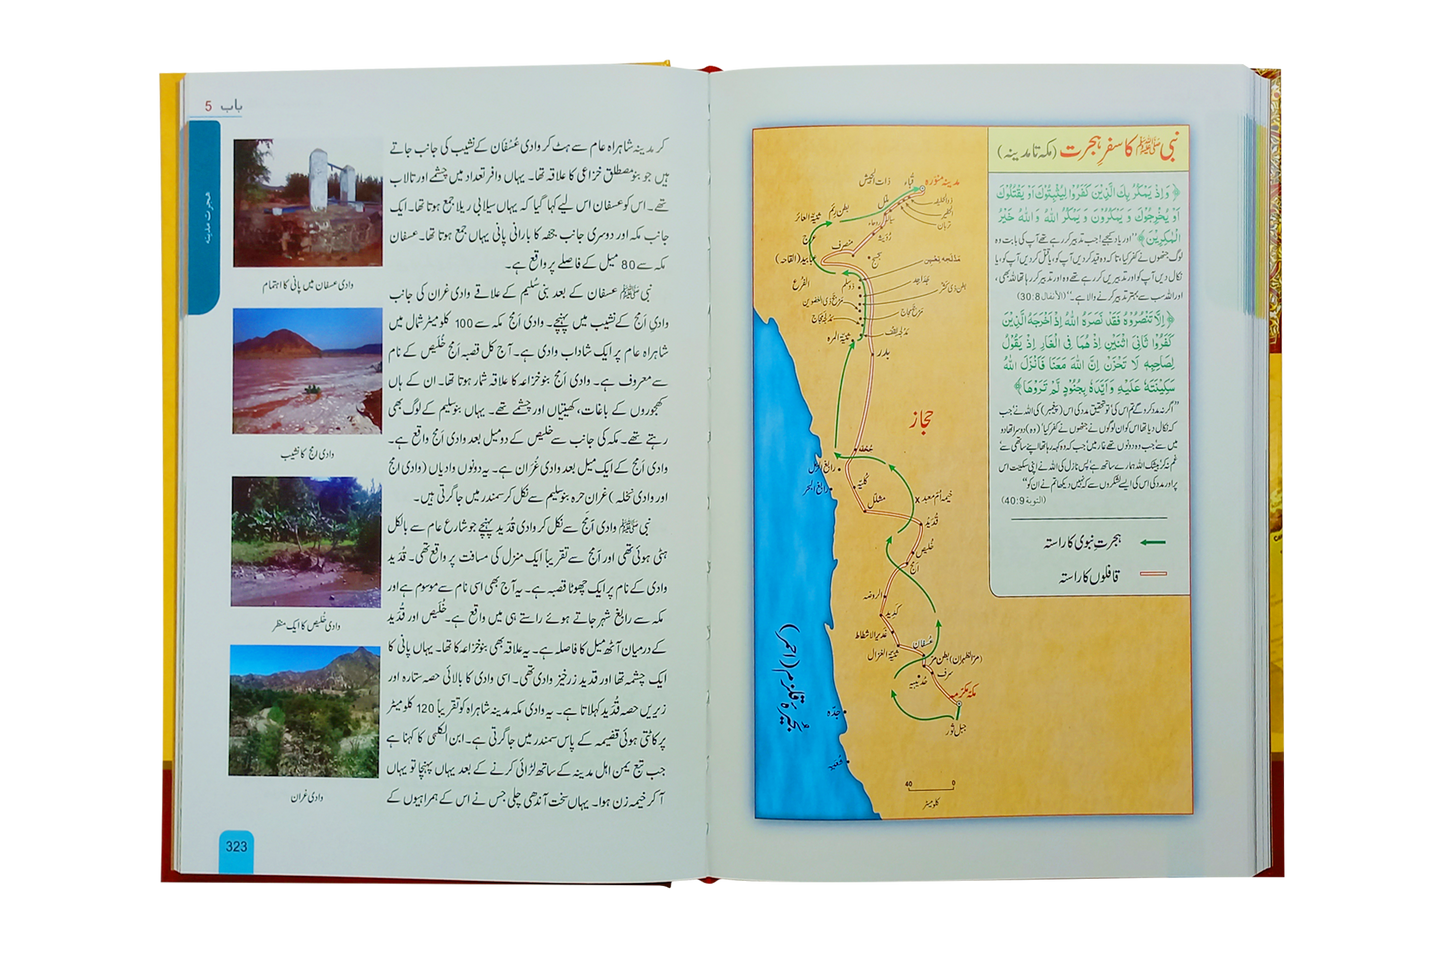 نبی ﷺ کا سفرِ ہجرت (مکہ تا مدینہ)
﴿ وَاِذْ یَمْكُرُ بِكَ الَّذِیْنَ كَفَرُوْا لِیُثْبِتُوْكَ اَوْ یَقْتُلُوْكَ
اَوْ یُخْرِجُوْكَ وَ یَمْكُرُوْنَ وَ یَمْكُرُ اللّٰهُ وَ اللّٰهُ خَیْرُ
الْمٰكِرِیْنَ ﴾ "اور یاد کیجیے! جب تدبیر کر رہے تھے آپ کی بابت وہ
لوگ جنھوں نے کفر کیا، تاکہ وہ قید کر دیں آپ کو، یا قتل کر دیں آپ کو، یا
نکال دیں آپ کو اور تدبیریں کر رہے تھے وہ اور تدبیر کر رہا تھا اللہ بھی،
اور اللہ سب سے بہتر تدبیر کرنے والا ہے۔" (الأنفال 30:8)
﴿ اِلَّا تَنْصُرُوْهُ فَقَدْ نَصَرَهُ اللّٰهُ اِذْ اَخْرَجَهُ الَّذِیْنَ
كَفَرُوْا ثَانِیَ اثْنَیْنِ اِذْ هُمَا فِی الْغَارِ اِذْ یَقُوْلُ
لِصَاحِبِهٖ لَا تَحْزَنْ اِنَّ اللّٰهَ مَعَنَا فَاَنْزَلَ اللّٰهُ
سَكِیْنَتَهٗ عَلَیْهِ وَ اَیَّدَهٗ بِجُنُوْدٍ لَّمْ تَرَوْهَا ﴾
"اگر نہ مدد کرو گے تم اس کی تو تحقیق مدد کی اس (پیغمبر) کی اللہ نے جب
کہ نکال دیا تھا اس کو ان لوگوں نے جنھوں نے کفر کیا (وہ) دوسرا تھا دو
میں سے جب وہ دونوں تھے غار میں جب کہ وہ کہہ رہا تھا اپنے ساتھی سے
غم نہ کر بیشک اللہ ہمارے ساتھ ہے پس نازل کی اللہ نے اپنی سکینت اس
پر اور مدد کی اس کی ایسے لشکروں سے کہ نہیں دیکھا تم نے ان کو"
(التوبة 40:9)
ہجرتِ نبوی کا راستہ
قافلوں کا راستہ
مدینہ منوّرہ
قُباء
ذات الجَیش
ذوالحلیفہ
ملل
بطن رِئم
ثنیۃ العائر
تربان
عرج
منصرف
(القاحہ)
الفُرع
ذو سلم
جداجد
بطن ذی کشر
ثنیۃ المرہ
بدر
حجاز
جُحفہ
رابغ البحر
کلیّہ
مشلّل
خیمہ اُمّ معبد
قُدَید
خُلیص
اَمَج
الروضہ
کدید
غدیر الاشطاط
عُسفان
ثنیۃ الغزال
(مرّ الظہران) بطن مرّ
سرف
حدیبیہ
مکہ مکرّمہ
جبل ثور
جدّہ
بحیرۂ قلزم (احمر)
40 0
کلومیٹر
باب 5
ہجرت مدینہ
کر مدینہ شاہراہ عام سے ہٹ کر وادی عُسْفَان کے نشیب کی جانب جاتے
ہیں جو بنو مصطلق خزاعی کا علاقہ تھا۔ یہاں وافر تعداد میں چشمے اور تالاب
تھے۔ اس کو عسفان اس لیے کہا گیا کہ یہاں سیلابی ریلا جمع ہوتا تھا۔ ایک
جانب مکہ اور دوسری جانب جحفہ کا بارانی پانی یہاں جمع ہوتا تھا۔ عسفان
مکہ سے 80 میل کے فاصلے پر واقع ہے۔
نبی ﷺ عسفان کے بعد بنی سُلیم کے علاقے وادی غران کی جانب
وادیِ اَمَج کے نشیب میں پہنچے۔ وادی اَمَج مکہ سے 100 کلومیٹر شمال میں
شاہراہ عام پر ایک شاداب وادی ہے۔ آج کل قصبہ اَمَج خُلَیص کے نام
سے معروف ہے۔ وادی اَمَج بنو خزاعہ کا علاقہ شمار ہوتا تھا۔ ان کے ہاں
کھجوروں کے باغات، کھیتیاں اور چشمے تھے۔ یہاں بنو سلیم کے لوگ بھی
رہتے تھے۔ مکہ کی جانب سے خلیص کے دو میل بعد وادی اَمَج واقع ہے۔
وادی اَمَج کے ایک میل بعد وادی غُرَان ہے۔ یہ دونوں وادیاں (وادی امج
اور وادی نخلہ) غران حرہ بنو سلیم سے نکل کر سمندر میں جا گرتی ہیں۔
نبی ﷺ وادی اَمَج سے نکل کر وادی قُدَید پہنچے جو شارع عام سے بالکل
ہٹی ہوئی تھی اور اَمَج سے تقریباً ایک منزل کی مسافت پر واقع تھی۔ قُدَید
وادی کے نام پر ایک چھوٹا قصبہ ہے۔ یہ آج بھی اسی نام سے موسوم ہے اور
مکہ سے رابغ شہر جاتے ہوئے راستے ہی میں واقع ہے۔ خُلَیص اور قُدَید
کے درمیان آٹھ میل کا فاصلہ ہے۔ یہ علاقہ بھی بنو خزاعہ کا تھا۔ یہاں پانی کا
ایک چشمہ تھا اور قدید زرخیز وادی تھی۔ اسی وادی کا بالائی حصہ ستارہ اور
زیریں حصہ قُدَید کہلاتا ہے۔ یہ وادی مکہ مدینہ شاہراہ کو تقریباً 120 کلومیٹر
پر کاٹتی ہوئی قضیمہ کے پاس سمندر میں جا گرتی ہے۔ ابن الکلبی کا کہنا ہے
جب تبع یمن اہل مدینہ کے ساتھ لڑائی کرنے کے بعد یہاں پہنچا تو یہاں
آ کر خیمہ زن ہوا۔ یہاں سخت آندھی چلی جس نے اس کے ہمراہیوں کے
وادی عسفان میں پانی کا اہتمام
وادی امج کا نشیب
وادی خُلیص کا ایک منظر
وادی غران
323